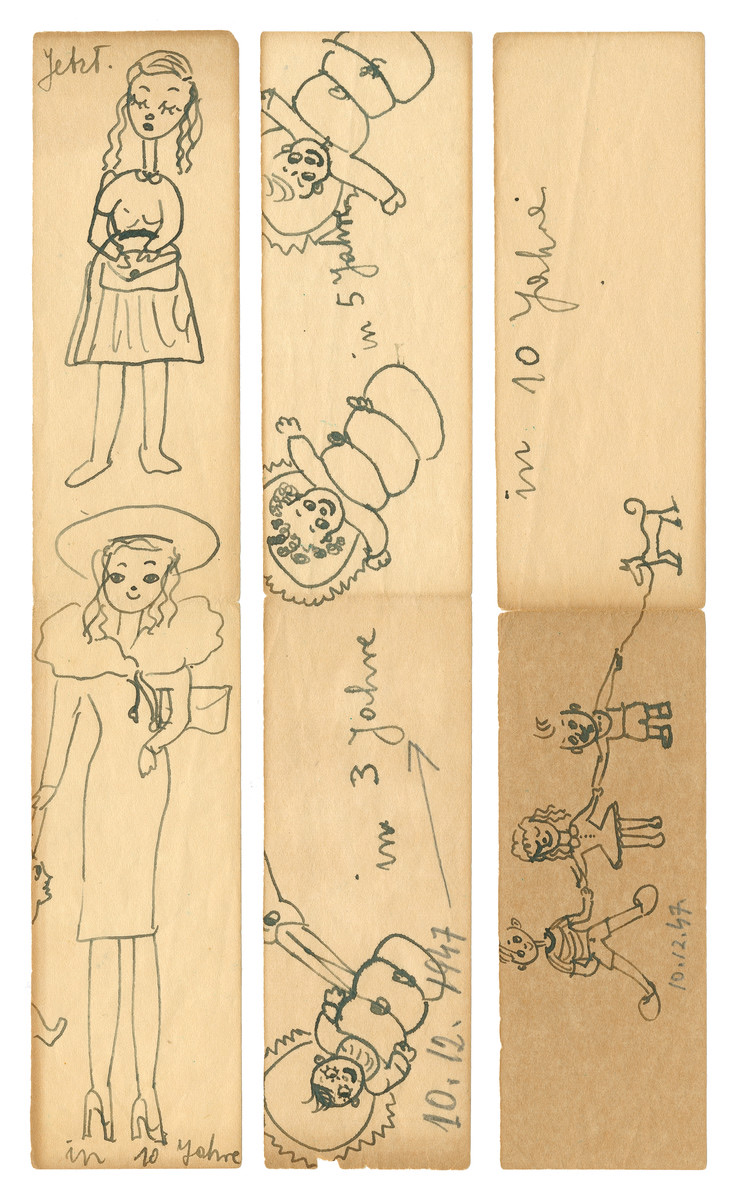 Jetzt.
in 10 Jahre
in 5 Jahre
in 3 Jahre
10.12. 1947
in 10 Jahre
10.12.47.